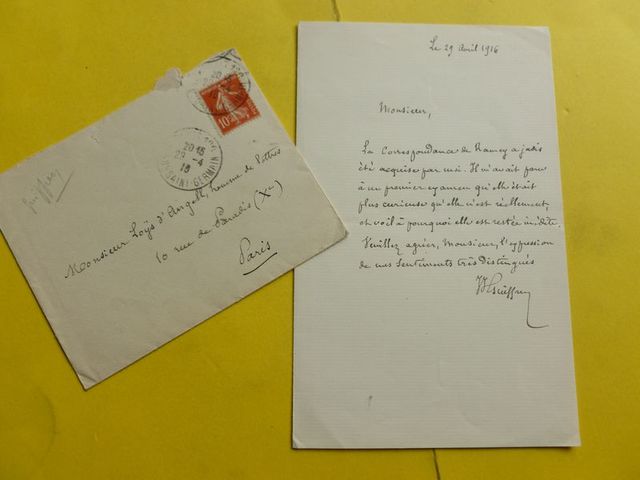 Le 29 avril 1916
Monsieur,
La Correspondance de Ramey a jadis
été acquise par moi. Il m'avait paru
à un premier examen qu'elle était
plus curieuse qu'elle n'est réellement,
et voilà pourquoi elle est restée inédite.
Veuillez agréer, Monsieur, l'expression
de mes Sentiments très Distingués
JJ Guiffrey
Guiffrey
20 15
29 - 4
16
SAINT GERMAIN
10
Monsieur Loÿs d'Angell, homme de lettres
10 rue de Paradis (Xe)
Paris